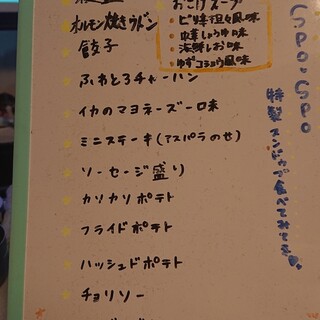 ホルモン焼きウドン
餃子
ふわとろチャーハン
イカのマヨネーズ一味
ミニステーキ(アスパラのせ)
ソーセージ盛り
カリカリポテト
フライドポテト
ハッシュドポテト
チョリソー
おこげスープ
・ピリ辛担々風味
・中華しょうゆ味
・海鮮しお味
・ゆずコショウ風味
SPO.SPO
特製スンドゥブ食べてみてネ